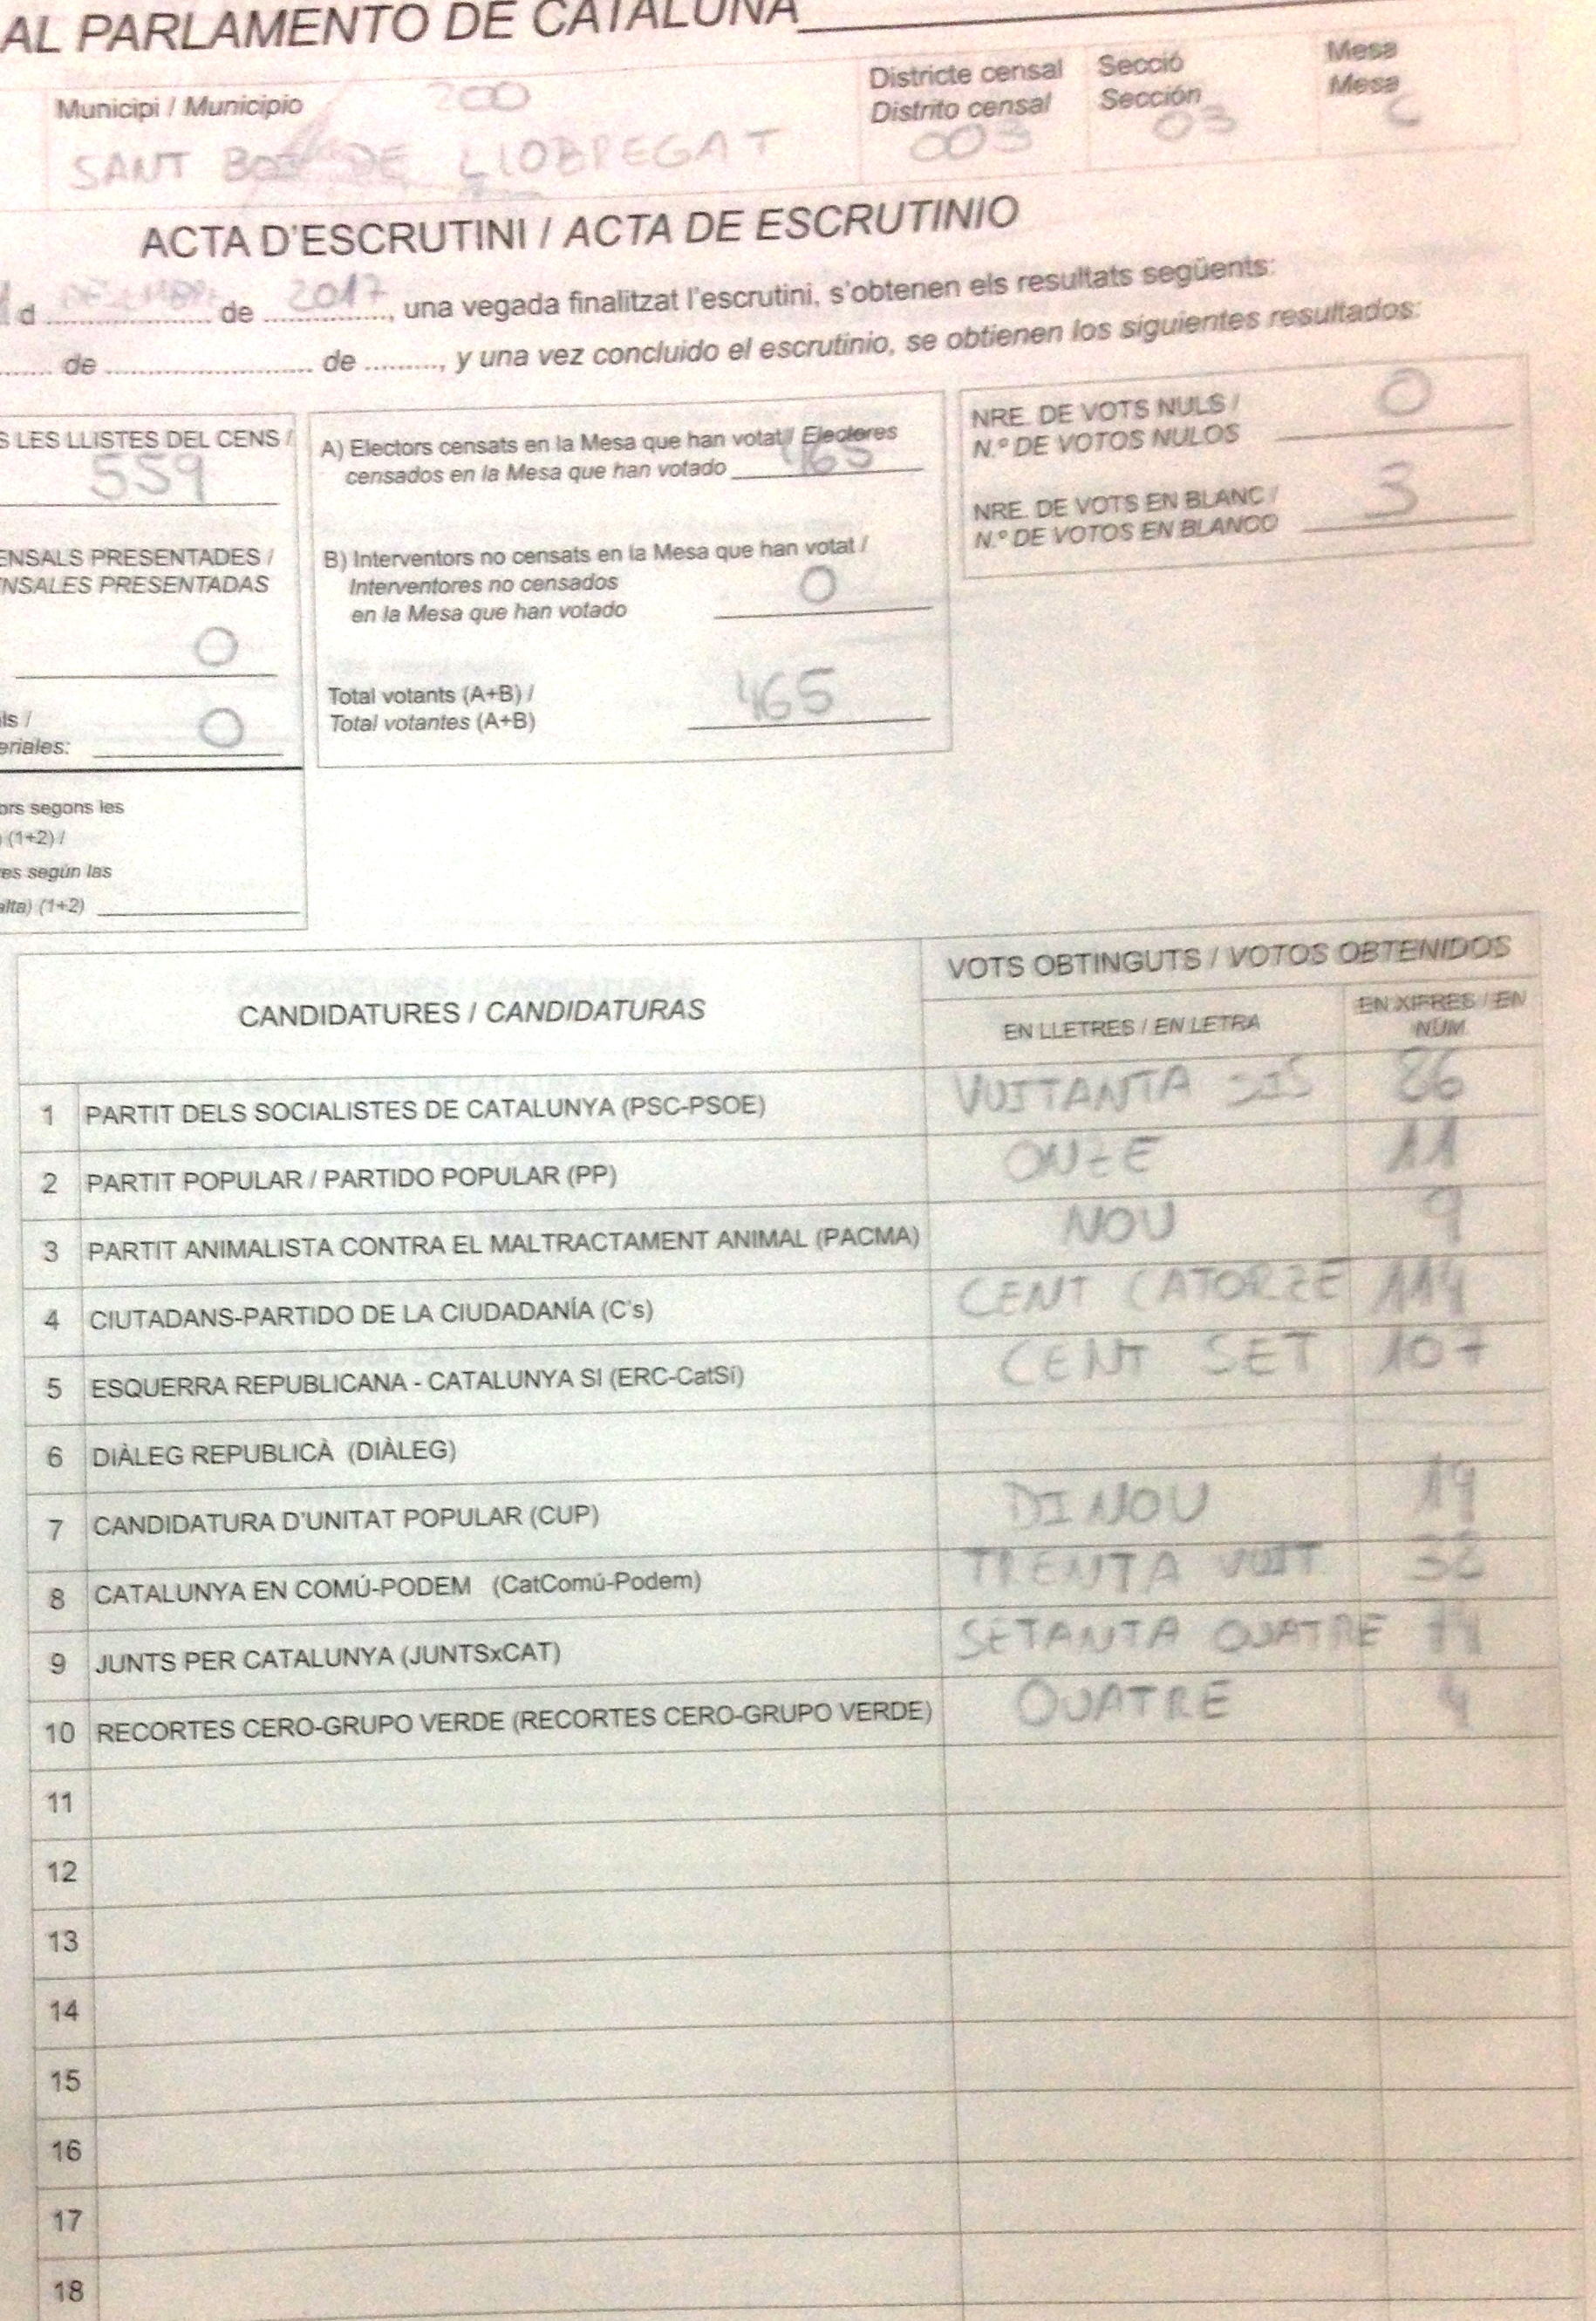 AL PARLAMENTO DE CATALUÑA
Municipi / Municipio
200
SANT BOI DE LLOBREGAT
Districte censal
Distrito censal
003
Secció
Sección
03
Mesa
Mesa
C
ACTA D'ESCRUTINI / ACTA DE ESCRUTINIO
de 2017, una vegada finalitzat l'escrutini, s'obtenen els resultats següents:
de de, y una vez concluido el escrutinio, se obtienen los siguientes resultados:
S LES LLISTES DEL CENS /
559
ENSALS PRESENTADES /
NSALES PRESENTADAS
0
eriales: 0
ors segons les
(1+2) /
es según las
alta) (1+2)
A) Electors censats en la Mesa que han votat / Electores
censados en la Mesa que han votado 465
B) Interventors no censats en la Mesa que han votat /
Interventores no censados
en la Mesa que han votado 0
Total votants (A+B) /
Total votantes (A+B) 465
NRE. DE VOTS NULS /
N.º DE VOTOS NULOS 0
NRE. DE VOTS EN BLANC /
N.º DE VOTOS EN BLANCO 3
CANDIDATURES / CANDIDATURAS
VOTS OBTINGUTS / VOTOS OBTENIDOS
EN LLETRES / EN LETRA
EN XIFRES / EN
NÚM
1 PARTIT DELS SOCIALISTES DE CATALUNYA (PSC-PSOE) VUITANTA SIS 86
2 PARTIT POPULAR / PARTIDO POPULAR (PP) ONZE 11
3 PARTIT ANIMALISTA CONTRA EL MALTRACTAMENT ANIMAL (PACMA) NOU 9
4 CIUTADANS-PARTIDO DE LA CIUDADANÍA (C's) CENT CATORZE 114
5 ESQUERRA REPUBLICANA - CATALUNYA SI (ERC-CatSí) CENT SET 107
6 DIÀLEG REPUBLICÀ (DIÀLEG)
7 CANDIDATURA D'UNITAT POPULAR (CUP) DINOU 19
8 CATALUNYA EN COMÚ-PODEM (CatComú-Podem) TRENTA VUIT 38
9 JUNTS PER CATALUNYA (JUNTSxCAT) SETANTA QUATRE 74
10 RECORTES CERO-GRUPO VERDE (RECORTES CERO-GRUPO VERDE) QUATRE 4
11
12
13
14
15
16
17
18